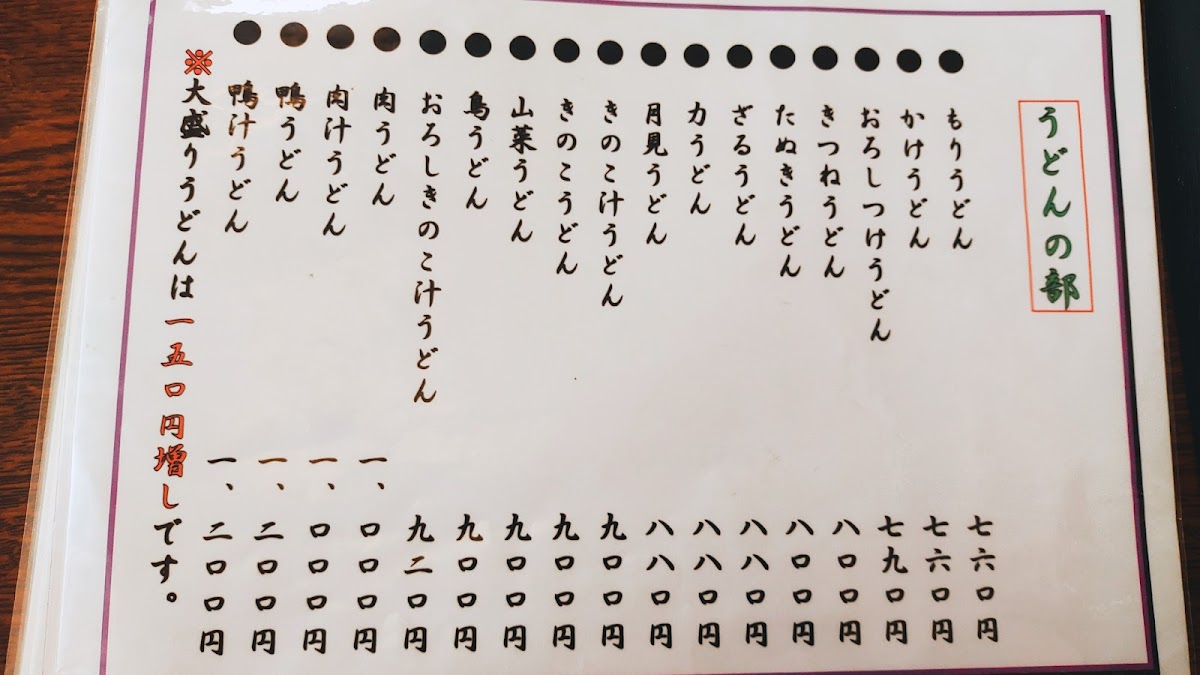 うどんの部
●もりうどん 七六〇円
●かけうどん 七六〇円
●おろしつけうどん 七九〇円
●きつねうどん 八〇〇円
●たぬきうどん 八〇〇円
●ざるうどん 八八〇円
●力うどん 八八〇円
●月見うどん 八八〇円
●きのこ汁うどん 九〇〇円
●きのこうどん 九〇〇円
●山菜うどん 九〇〇円
●鳥うどん 九〇〇円
●おろしきのこ汁うどん 九二〇円
●肉うどん 一、〇〇〇円
●肉汁うどん 一、〇〇〇円
●鴨うどん 一、二〇〇円
●鴨汁うどん 一、二〇〇円
※大盛りうどんは一五〇円増しです。